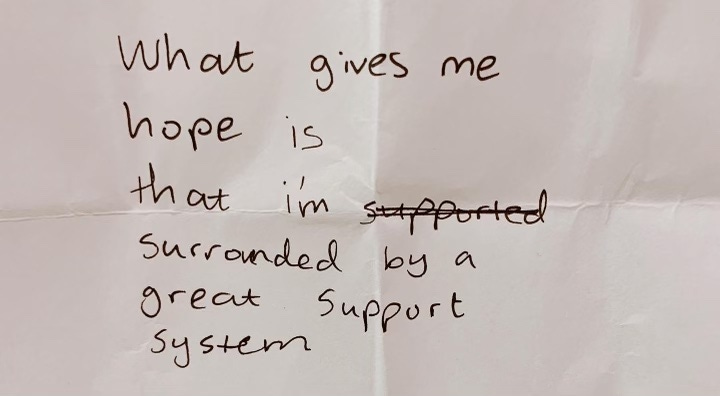 What gives me
hope is
that i'm ~~supported~~
surrounded by a
great support
system